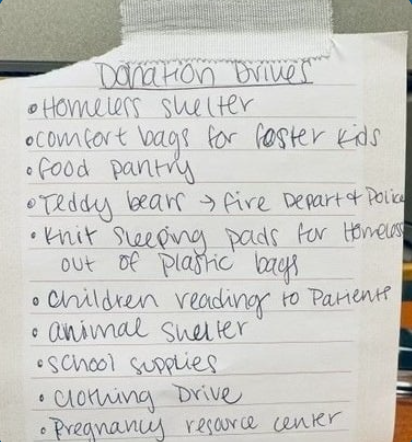 Donation Drives
• Homeless shelter
• comfort bags for foster kids
• food pantry
• Teddy bears → fire Depart & Police
• Knit Sleeping pads for Homeless
out of plastic bags
• children reading to Patients
• animal shelter
• school supplies
• clothing Drive
• Pregnancy resource center